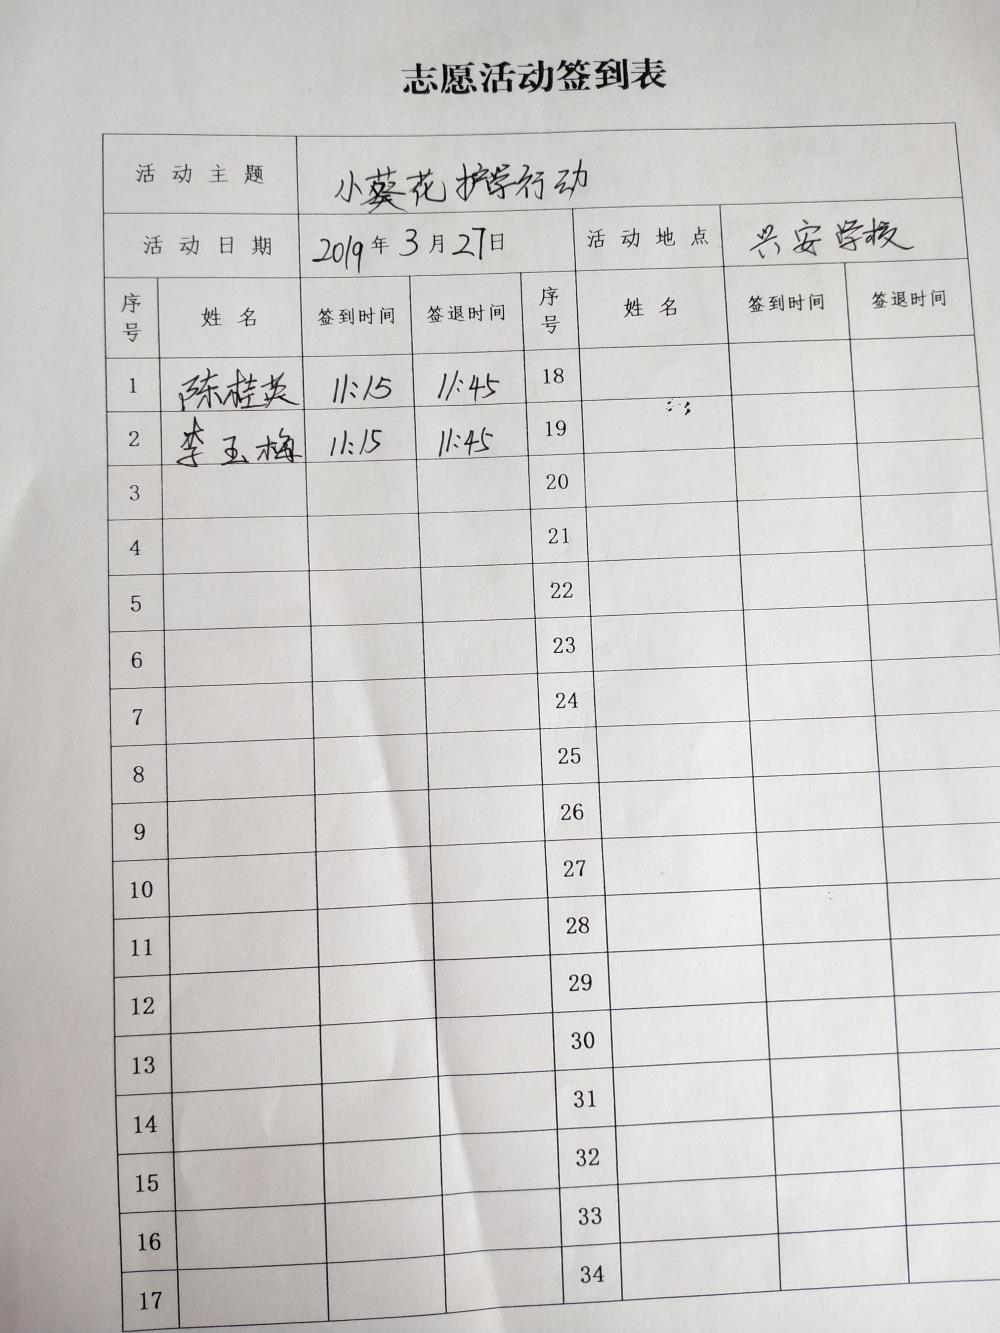 志愿活动签到表
活动主题 小葵花护学行动
活动日期 2019年3月27日 活动地点 兴安学校
序号 姓名 签到时间 签退时间 序号 姓名 签到时间 签退时间
1 陈桂英 11:15 11:45 18
2 李玉梅 11:15 11:45 19
3 20
4 21
5 22
6 23
7 24
8 25
9 26
10 27
11 28
12 29
13 30
14 31
15 32
16 33
17 34